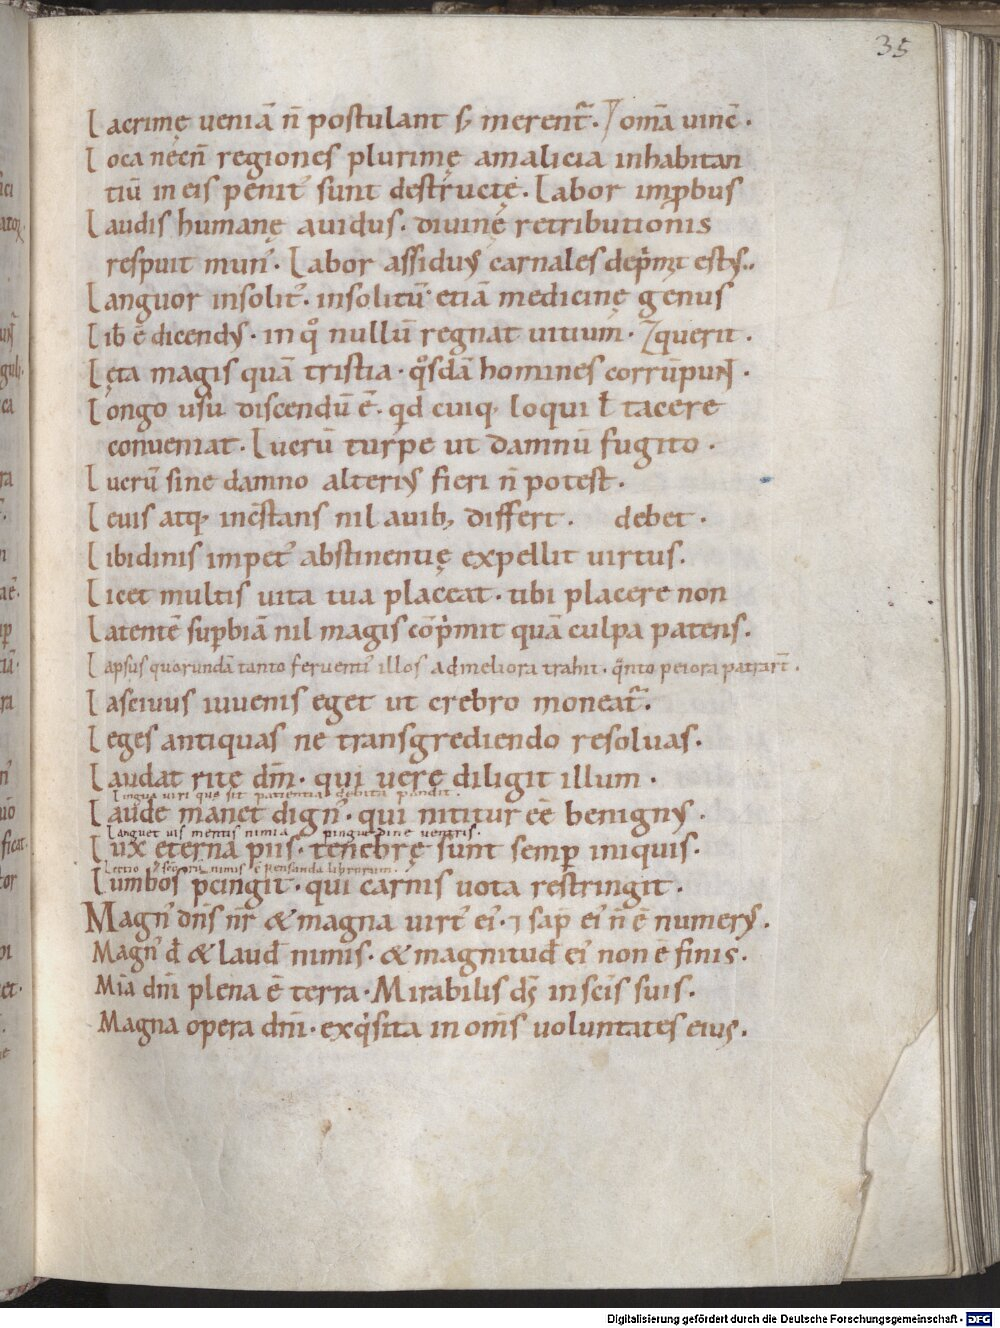 35
Lacrimę ueniā n̄ postulant s; merent᷑. / om̄a uinc̄.
Loca necn̄ regiones plurimę amalicia inhabitan
tiū in eis penit᾽ sunt destructę. Labor imꝓbus
Laudis humanę auidus. diuinę retributionis
respuit mun᾽. Labor assiduꝰ carnales dep̍mit estꝰ..
Languor insolit᾽. insolitū etiā medicinę genus
Lib̄ ē dicendꝰ. in qͦ nullū regnat uitium. / querit.
Lęta magis quā tristia. qͦsdā homines corrūpunt.
Longo usu discendū ē. qd̄ cuiq. loqui ł tacere
conueniat. Lucrū turpe ut damnū fugito.
Lucrū sine damno alteriꝰ fieri n̄ potest.
Leuis atq. incōstans nil auib; differt. debet.
Libidinis impet᾽ abstinentię expellit uirtus.
Licet multis uita tua placeat. tibi placere non
Latentē suꝑbiā nil magis cōp̍mit quā culpa patens.
Lapsus quorundā tanto feruenti᾽ illos ad meliora trahit. q̍nto peiora patrar᷑t.
Lasciuus iuuenis eget ut crebro moneat᷑.
Leges antiquas ne transgrediendo resoluas.
Laudat rite dn̄m. qui uere diligit illum.
Lingua uiri que sit patientia debita pandit.
Laude manet dign᾽. qui nititur eē benignꝰ.
Languet uis mentis nimia pinguedine uentris.
Lux eterna piis. tenebrę sunt semꝑ iniquis.
Lectio nimis ē pensanda librorum.
Lumbos p̄cingit. qui carnis uota restringit.
Magn᾽ dn̄s nr̄ & magna uirt᾽ ei᾽. ⁊ sap̄ ei᾽ n̄ ē numerꝰ.
Magn᾽ d̄ & laud̄ nimis. & magnitud̄ ei᾽ non ē finis.
Mia dn̄i plena ē terra. Mirabilis ds̄ in sc̄is suis.
Magna opera dn̄i. exq̍sita in om̄s uoluntates eius.
Digitalisierung gefördert durch die Deutsche Forschungsgemeinschaft - DFG